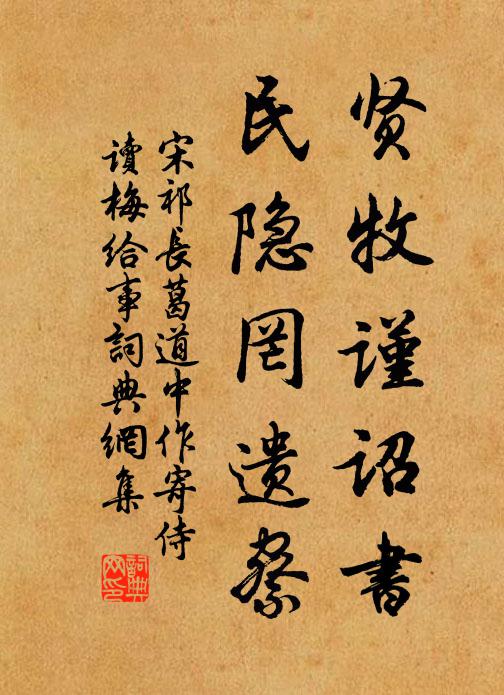 贤牧谨诏书
民隐罔遗察
宋祁長葛道中作寄侍
讀梅給事詞典網集
詞典网印